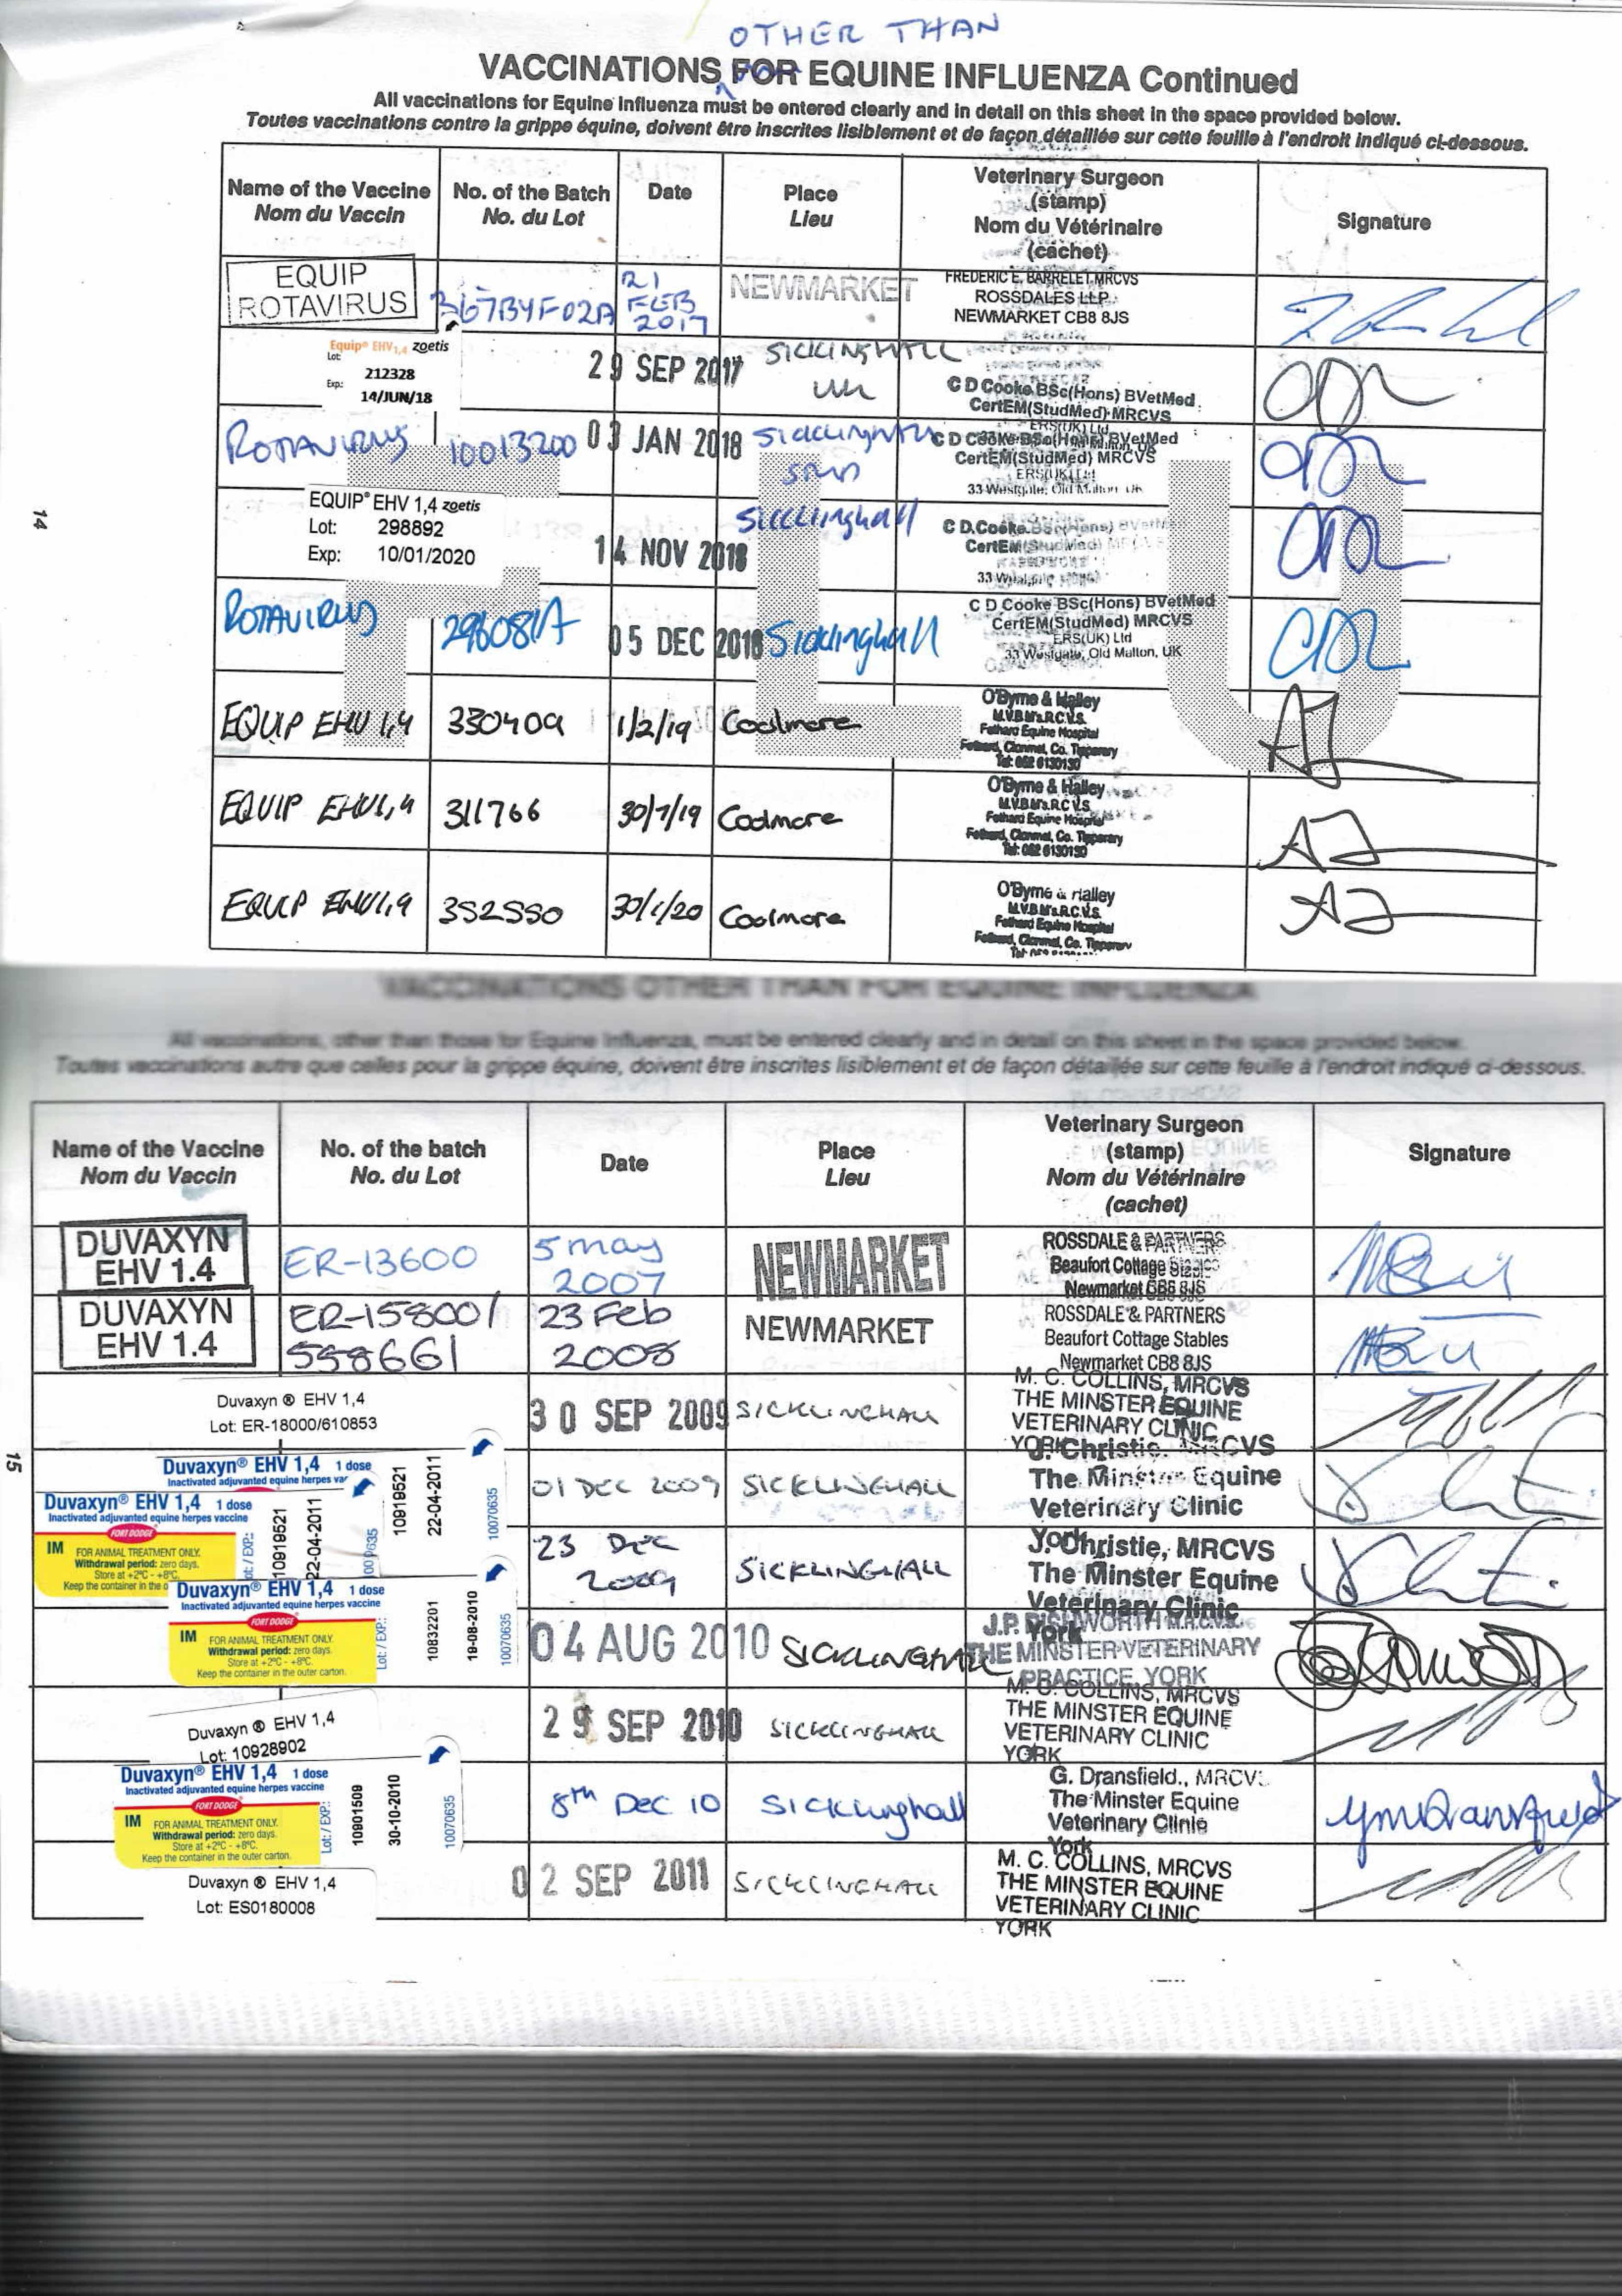 OTHER THAN
VACCINATIONS FOR EQUINE INFLUENZA Continued
All vaccinations for Equine Influenza must be entered clearly and in detail on this sheet in the space provided below.
Toutes vaccinations contre la grippe équine, doivent être inscrites lisiblement et de façon détaillée sur cette feuille à l'endroit indiqué ci-dessous.
Name of the Vaccine
Nom du Vaccin
No. of the Batch
No. du Lot
Date
Place
Lieu
Veterinary Surgeon
(stamp)
Nom du Vétérinaire
(cachet)
Signature
EQUIP
ROTAVIRUS
367B4F02A
21
FEB
2017
NEWMARKET
FREDERIC E. BARRELET MRCVS
ROSSDALES LLP
NEWMARKET CB8 8JS
Equip® EHV1,4 zoetis
Lot:
212328
Exp:
14/JUN/18
29 SEP 2017
SICKLINGHALL
C D Cooke BSc(Hons) BVetMed
CertEM(StudMed) MRCVS
ERS(UK) Ltd
ROTAVIRUS
10013200
03 JAN 2018
Sicklinghall
C D Cooke BSc(Hons) BVetMed
CertEM(StudMed) MRCVS
ERS(UK) Ltd
33 Westgate, Old Malton, UK
14
EQUIP® EHV 1,4 zoetis
Lot: 298892
Exp: 10/01/2020
14 NOV 2018
Sicklinghall
C D Cooke
CertEM(StudMed)
33
ROTAVIRUS
296081A
05 DEC 2018
Sicklinghall
C D Cooke BSc(Hons) BVetMed
CertEM(StudMed) MRCVS
ERS(UK) Ltd
33 Westgate, Old Malton, UK
EQUIP EHV 1,4
330409
1/2/19
Coolmore
O'Byrne & Halley
M.V.B M's.R.C.V.S.
Fethard Equine Hospital
Fethard, Clonmel, Co. Tipperary
Tel: 052 6130130
EQUIP EHV1,4
311766
30/7/19
Coolmore
O'Byrne & Halley
M.V.B M's.R.C.V.S.
Fethard Equine Hospital
Fethard, Clonmel, Co. Tipperary
Tel: 052 6130130
EQUIP EHV1,4
352550
30/1/20
Coolmore
O'Byrne & Halley
M.V.B M's.R.C.V.S.
Fethard Equine Hospital
Fethard, Clonmel, Co. Tipperary
VACCINATIONS OTHER THAN FOR EQUINE INFLUENZA
All vaccinations, other than those for Equine Influenza, must be entered clearly and in detail on this sheet in the space provided below.
Toutes vaccinations autre que celles pour la grippe équine, doivent être inscrites lisiblement et de façon détaillée sur cette feuille à l'endroit indiqué ci-dessous.
Name of the Vaccine
Nom du Vaccin
No. of the batch
No. du Lot
Date
Place
Lieu
Veterinary Surgeon
(stamp)
Nom du Vétérinaire
(cachet)
Signature
DUVAXYN
EHV 1.4
ER-13600
5 may
2007
NEWMARKET
ROSSDALE & PARTNERS
Beaufort Cottage Stables
Newmarket CB8 8JS
DUVAXYN
EHV 1.4
ER-15800/
558661
23 Feb
2008
NEWMARKET
ROSSDALE & PARTNERS
Beaufort Cottage Stables
Newmarket CB8 8JS
Duvaxyn ® EHV 1,4
Lot: ER-18000/610853
30 SEP 2009
SICKLINGHALL
M. C. COLLINS, MRCVS
THE MINSTER EQUINE
VETERINARY CLINIC
YORK
15
Duvaxyn® EHV 1,4 1 dose
Inactivated adjuvanted equine herpes vac
10919521
22-04-2011
10070635
01 DEC 2009
SICKLINGHALL
J. Christie, MRCVS
The Minster Equine
Veterinary Clinic
York
Duvaxyn® EHV 1,4 1 dose
Inactivated adjuvanted equine herpes vaccine
FORT DODGE
IM
FOR ANIMAL TREATMENT ONLY.
Withdrawal period: zero days.
Store at +2°C - +8°C.
Keep the container in the o
Lot / EXP.:
10919521
22-04-2011
23 Dec
2009
SICKLINGHALL
J. Christie, MRCVS
The Minster Equine
Veterinary Clinic
York
Duvaxyn® EHV 1,4 1 dose
Inactivated adjuvanted equine herpes vaccine
FORT DODGE
IM
FOR ANIMAL TREATMENT ONLY.
Withdrawal period: zero days.
Store at +2°C - +8°C.
Keep the container in the outer carton.
Lot / EXP.:
10832201
19-08-2010
10070635
04 AUG 2010
SICKLINGHALL
J.P. RISHWORTH M.R.C.V.S.
THE MINSTER VETERINARY
PRACTICE, YORK
Duvaxyn ® EHV 1,4
Lot: 10928902
29 SEP 2010
SICKLINGHALL
M. C. COLLINS, MRCVS
THE MINSTER EQUINE
VETERINARY CLINIC
YORK
Duvaxyn® EHV 1,4 1 dose
Inactivated adjuvanted equine herpes vaccine
FORT DODGE
IM
FOR ANIMAL TREATMENT ONLY.
Withdrawal period: zero days.
Store at +2°C - +8°C.
Keep the container in the outer carton.
Lot / EXP.:
10901509
30-10-2010
10070635
8th Dec 10
Sicklinghall
G. Dransfield., MRCVS
The Minster Equine
Veterinary Clinic
York
Duvaxyn ® EHV 1,4
Lot: ES0180008
02 SEP 2011
SICKLINGHALL
M. C. COLLINS, MRCVS
THE MINSTER EQUINE
VETERINARY CLINIC
YORK